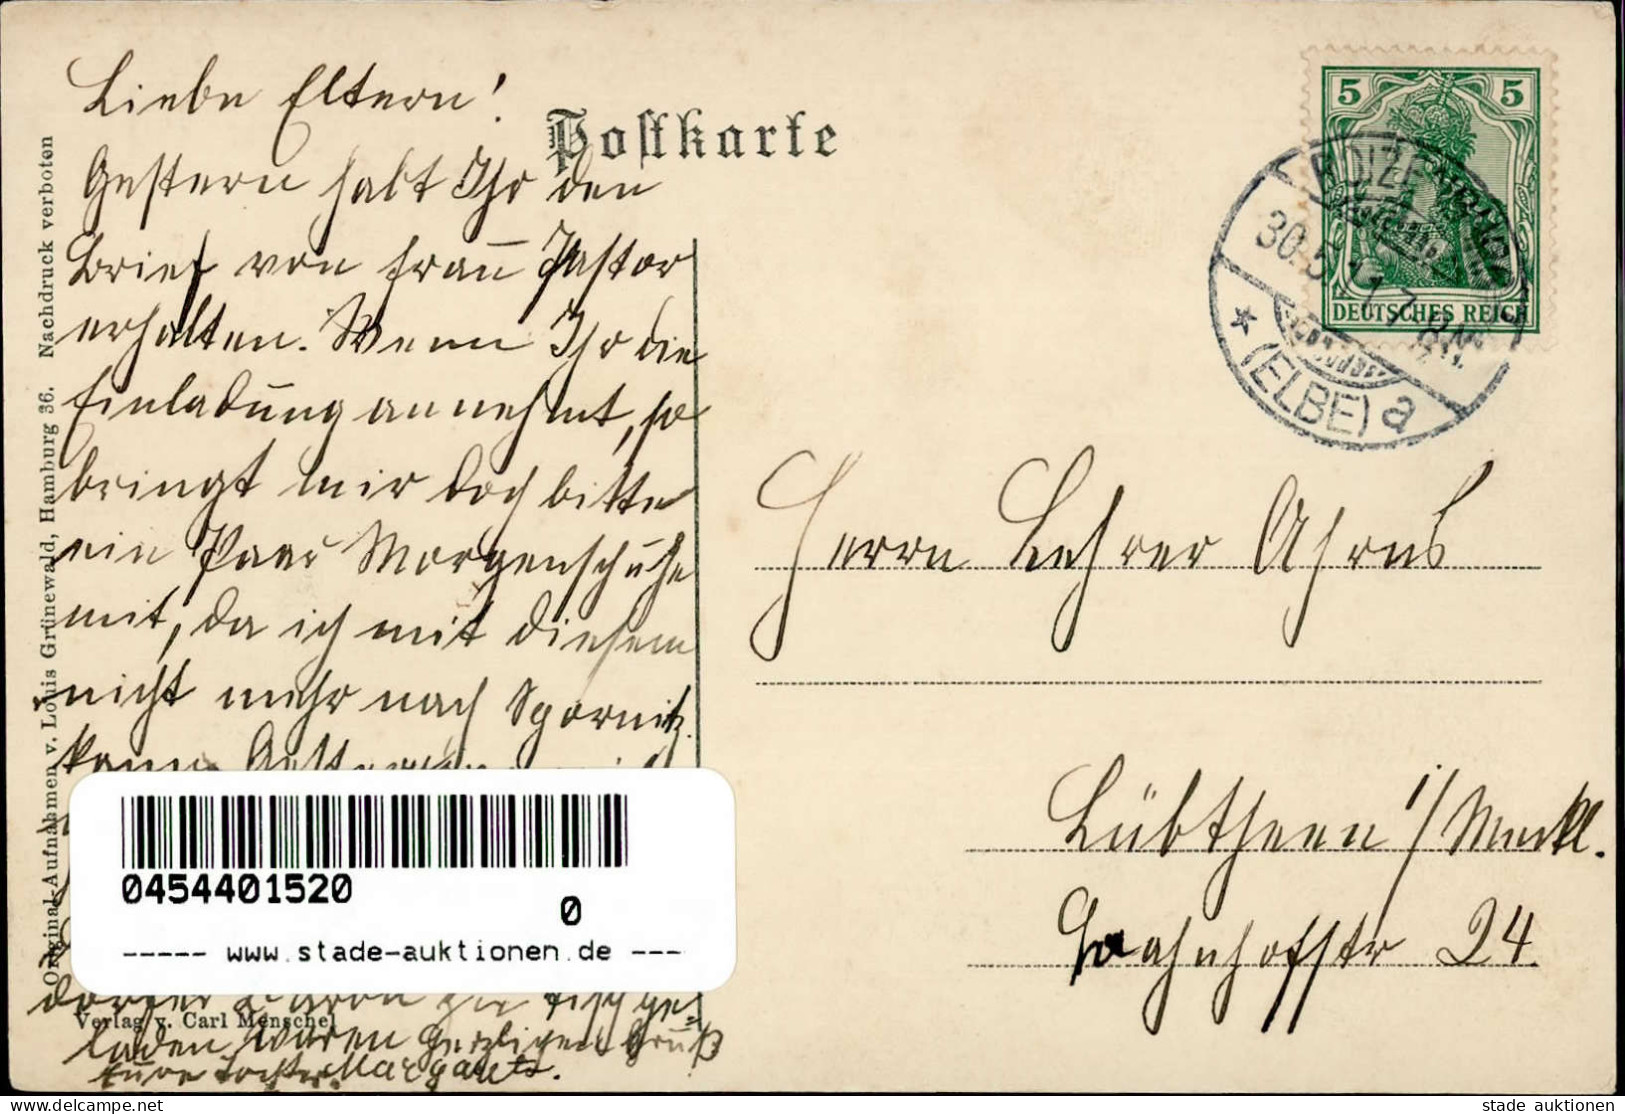 Postkarte
Liebe Eltern!
Gestern habt Ihr den
Brief von Frau Pastor
erhalten. Wenn Ihr die
Einladung annehmt, so
bringt mir doch bitte
ein Paar Morgenschuhe
mit, da ich mit diesem
nicht mehr nach Spornitz
kann. Gestern
zu Tisch ge-
laden waren. Herzlichen Gruß
Eure Tochter Margarete.
Original-Aufnahmen v. Louis Grünewald, Hamburg 36. Nachdruck verboten
Verlag v. Carl Menschel
5 5
DEUTSCHES REICH
BOIZENBURG
30.5.11.7-8N.
(ELBE) a
Herrn Lehrer Ahrens
Lübtheen i/Meckl.
Bahnhofstr 24.
04544015200
0
----- www.stade-auktionen.de ---
delcampe.net
stade auktionen